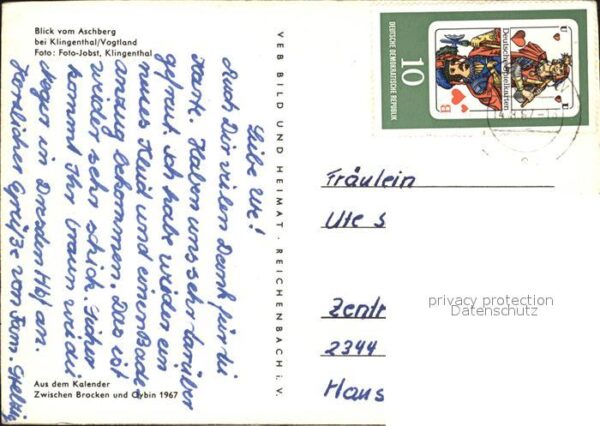 Blick vom Aschberg
bei Klingenthal/Vogtland
Foto: Foto-Jobst, Klingenthal
Liebe Ute!
Auch Dir vielen Dank für die
Karte. Haben uns sehr darüber
gefreut. Ich habe wieder ein
neues Kleid und einen Bade-
anzug bekommen. Das ist
wieder sehr schick. Sicher
kommt Ihr braun wie die
in Dresden Hbf an.
Herzlicher Grüße von Fam.
Aus dem Kalender
Zwischen Brocken und Oybin 1967
VEB BILD UND HEIMAT · REICHENBACH i. V.
DEUTSCHE DEMOKRATISCHE REPUBLIK
10
Deutsche Spielkarten
U
U
B
Fräulein
Ute S
Zentr
2344
Haus
privacy protection
Datenschutz